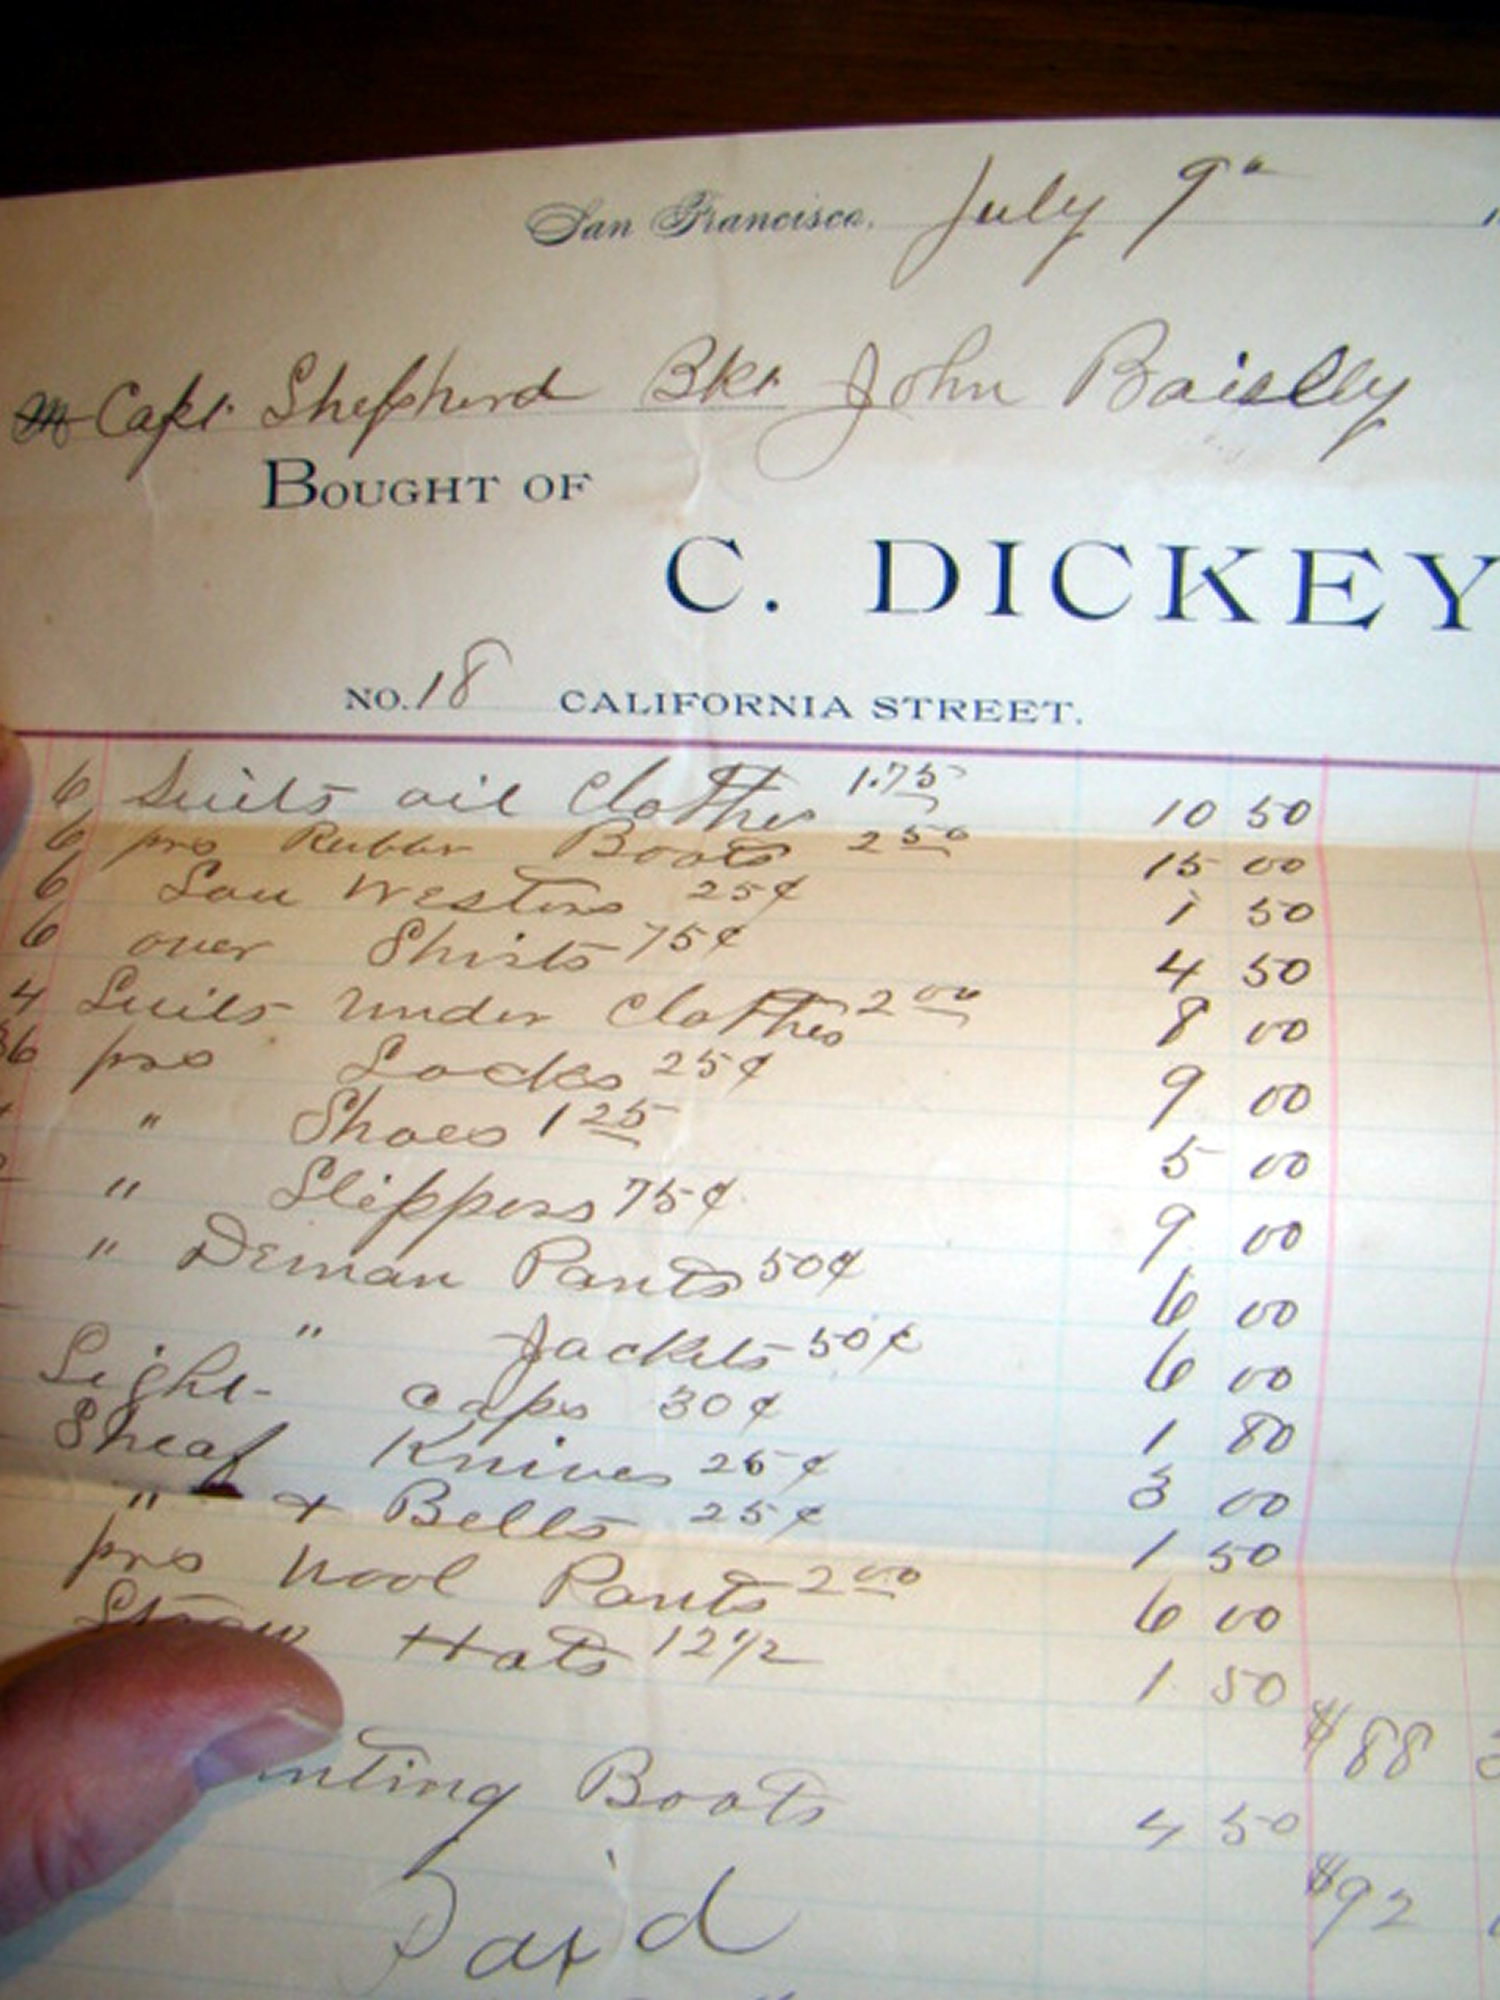 San Francisco, July 9th
M Capt. Shepherd Bkt John Baielly
BOUGHT OF
C. DICKEY
NO. 18 CALIFORNIA STREET.
6 Suits oil Clothes 1.75 10 50
6 prs Rubber Boots 2 50 15 00
6 Sou Westers 25¢ 1 50
6 over Shirts 75¢ 4 50
4 Suits under Clothes 2 00 8 00
36 prs Socks 25¢ 9 00
" Shoes 1 25 5 00
" Slippers 75¢ 9 00
" Deman Pants 50¢ 6 00
" Jackets 50¢ 6 00
Light caps 30¢ 1 80
Sheaf Knives 25¢ 3 00
" + Bells 25¢ 1 50
prs Wool Pants 2 00 6 00
Straw Hats 12 1/2 1 50
$88
nting Boots 4 50
$92
Paid